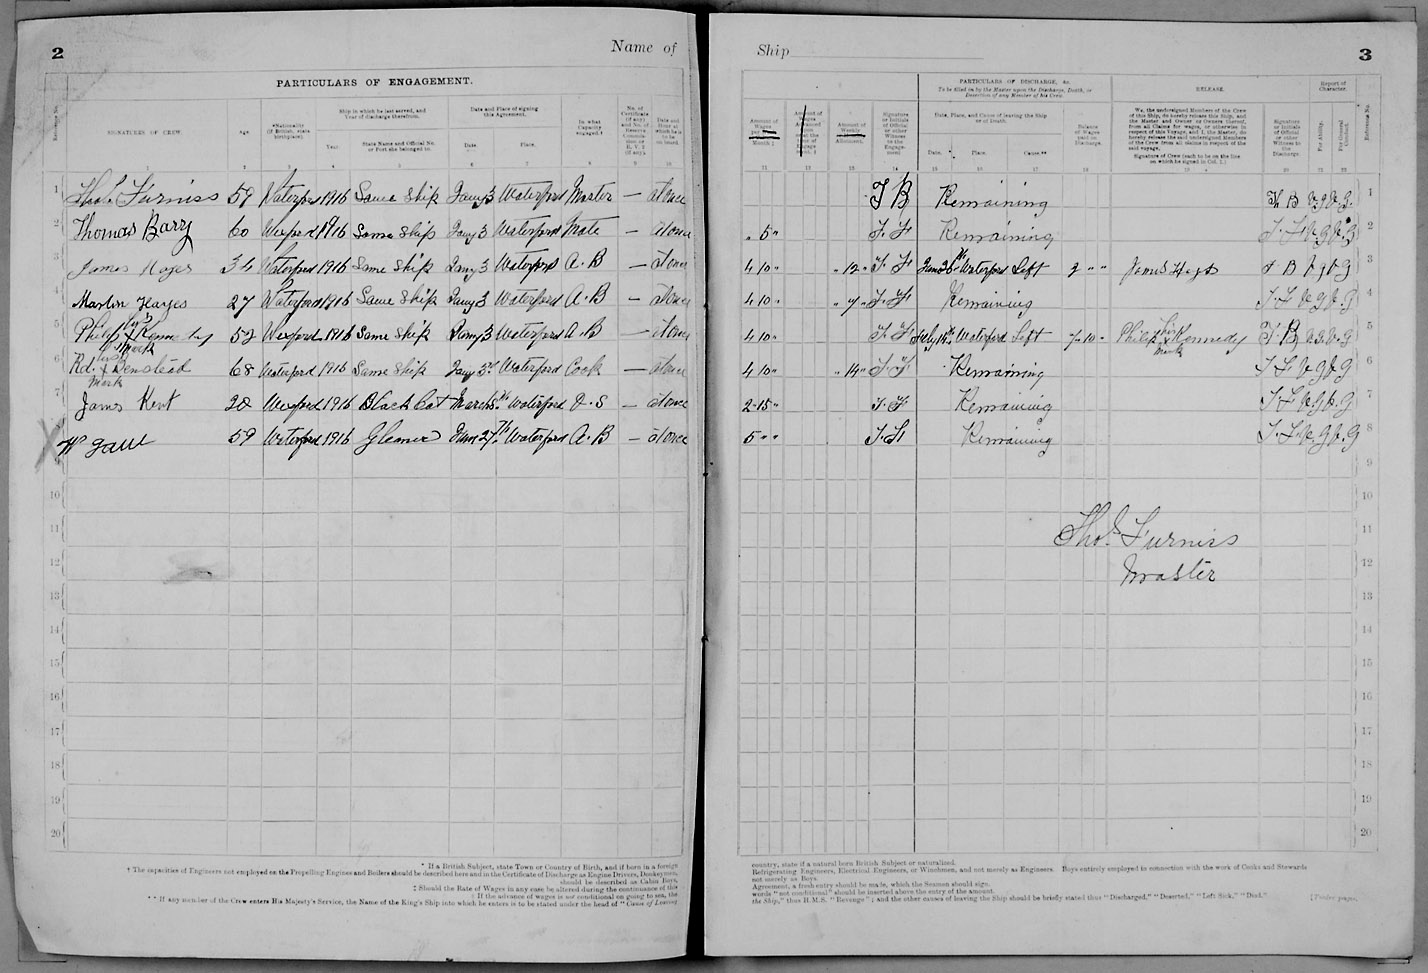 2
Name of
PARTICULARS OF ENGAGEMENT.
Reference No.
SIGNATURES OF CREW.
Age.
*Nationality
(If British, state
birthplace).
Ship in which he last served, and
Year of discharge therefrom.
Year.
State Name and Official No.
or Port she belonged to.
Date and Place of signing
this Agreement.
Date.
Place.
In what
Capacity
engaged.†
No. of
Certificate
(if any)
Date and
Hour at
which he is
to be
on board.
1 Thos. Furniss 59 Waterford 1916 Same Ship Jany 3 Waterford Master — at once
2 Thomas Barry 60 Wexford 1916 Same Ship Jany 3 Waterford Mate — at once
3 James Hayes 34 Waterford 1916 Same Ship Jany 3 Waterford A.B — at once
4 Martin Hayes 27 Waterford 1916 Same Ship Jany 3 Waterford A.B — at once
5 Philip his X mark Kennedy 52 Wexford 1916 Same Ship Jany 3 Waterford A.B — at once
6 Rd. his X mark Benstead 68 Waterford 1916 Same Ship Jany 3rd Waterford Cook — at once
7 James Kent 20 Wexford 1916 Black Cat March 8th Waterford O.S — at once
8 X Wm Gaul 59 Waterford 1916 Gleaner June 27th Waterford A.B — at once
9
10
11
12
13
14
15
16
17
18
19
20
* If a British Subject, state Town or Country of Birth, and if born in a foreign
† The capacities of Engineers not employed on the Propelling Engines and Boilers should be described here and in the Certificate of Discharge as Engine Drivers, Donkeymen,
should be described as Cabin Boys,
‡ Should the Rate of Wages in any case be altered during the continuance of this
If the advance of wages is not conditional on going to sea, the
** If any member of the Crew enters His Majesty's Service, the Name of the King's Ship into which he enters is to be stated under the head of "Cause of Leaving
Ship
3
PARTICULARS OF DISCHARGE, &c.
To be filled in by the Master upon the Discharge, Death, or
Desertion of any Member of his Crew.
RELEASE.
Report of
Character.
Amount of
Wages
per
Month ‡
Amount of
Weekly
Allotment.
Signature
or Initials
of Official
or other
Witness to
the Engage-
ment.
Date, Place, and Cause of leaving the Ship
or of Death.
Date.
Place.
Cause.**
Balance
of Wages
paid on
Discharge.
We, the undersigned Members of the Crew
of this Ship, do hereby release this Ship, and
the Master and Owner or Owners thereof,
from all Claims for wages, or otherwise in
respect of this Voyage, and I, the Master, do
hereby release the undersigned Members
of the Crew from all claims in respect of the
said voyage.
Signature of Crew (each to be on the line
on which he signed in Col. 1.)
Signature
or Initials
of Official
or other
Witness to
the
Discharge.
For Ability.
For General
Conduct.
Reference No.
T B Remaining T B V.G V.G. 1
" 5 " T. F Remaining T. F V.G V.G 2
4 10 " " 12 " T. F June 26th Waterford Left 2 " " James Hayes T B V.G V.G 3
4 10 " " 7 " T. F Remaining T F V.G V.G 4
4 10 " T. F July 16th Waterford Left 7 10 " Philip his X mark Kennedy T B V.G. V.G 5
4 10 " " 14 " T. F Remaining T F V.G V.G 6
2 15 " T. F Remaining T F V.G V.G 7
5 " " T. F Remaining T. F. V.G V.G 8
9
10
11
Thos. Furniss
12
Master
13
14
15
16
17
18
19
20
country, state if a natural born British Subject or naturalized.
Refrigerating Engineers, Electrical Engineers, or Winchmen, and not merely as Engineers. Boys entirely employed in connection with the work of Cooks and Stewards
not merely as Boys.
Agreement, a fresh entry should be made, which the Seamen should sign.
words "not conditional" should be inserted above the entry of the amount.
the Ship," thus H.M.S. "Revenge"; and the other causes of leaving the Ship should be briefly stated thus "Discharged," "Deserted," "Left Sick," "Died."
[Twelve pages.